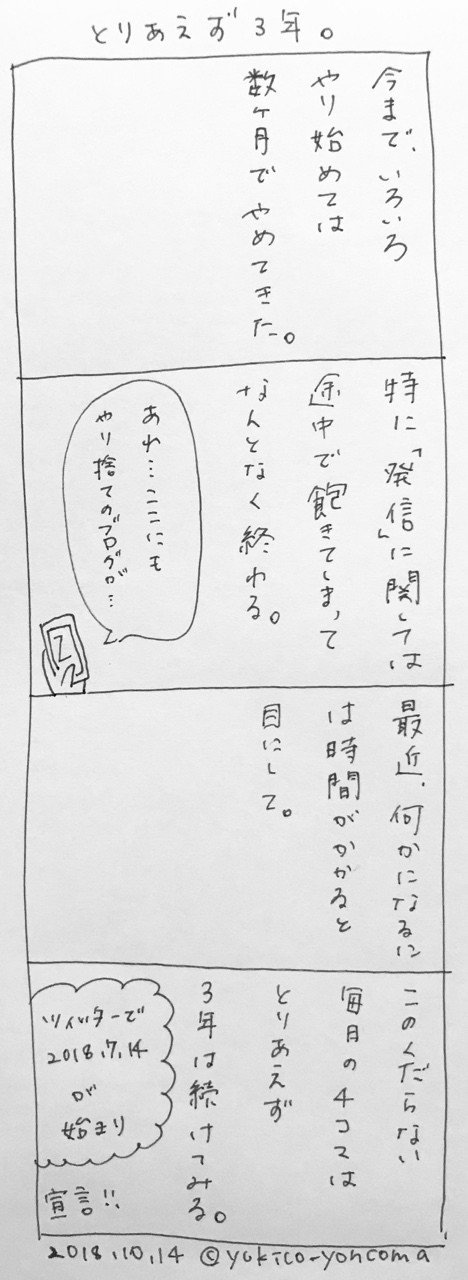 とりあえず3年。
今まで、いろいろ
やり始めては
数ヶ月でやめてきた。
特に「発信」に関しては
途中で飽きてしまって
なんとなく終わる。
あれ…ここにも
やり捨てのブログが…
最近、何かになるに
は時間がかかると
目にして。
このくだらない
毎日の4コマは
とりあえず
3年は続けてみる。
ツイッターで
2018.7.14
が
始まり
宣言!!
2018.10.14 ©yukico-yoncoma